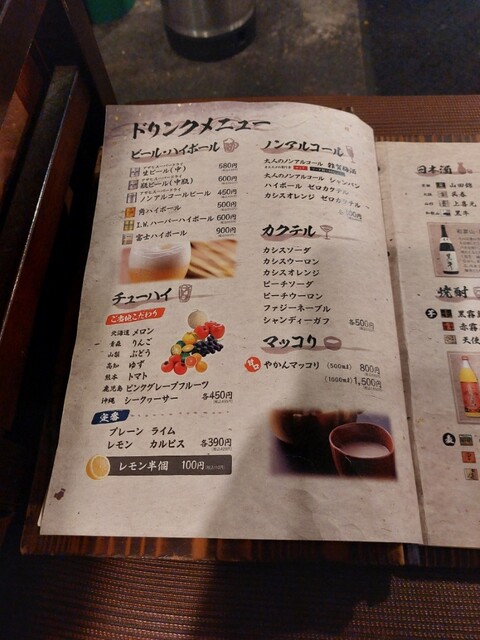 ドリンクメニュー
ビール・ハイボール
アサヒスーパードライ
生ビール(中) 580円
アサヒスーパードライ
瓶ビール(中瓶) 600円
ノンアルコールビール 450円
角ハイボール 500円
I.W.ハーパーハイボール 600円
富士ハイボール 900円
チューハイ
ご当地こだわり
北海道 メロン
青森 りんご
山梨 ぶどう
高知 ゆず
熊本 トマト
鹿児島 ピンクグレープフルーツ
沖縄 シークヮーサー 各450円
定番
プレーン ライム
レモン カルピス 各390円
レモン半個 100円
ノンアルコール
大人のノンアルコール
大人のノンアルコール シャンパン
ハイボール ゼロカクテル
カシスオレンジ ゼロカクテル
カクテル
カシスソーダ
カシスウーロン
カシスオレンジ
ピーチソーダ
ピーチウーロン
ファジーネーブル
シャンディーガフ 各500円
マッコリ
やかんマッコリ (500ml) 800円
(1000ml) 1,500円
日本酒
山田錦
呉春
上喜元
黒牛
焼酎
芋 黒霧
赤霧
天使
麦